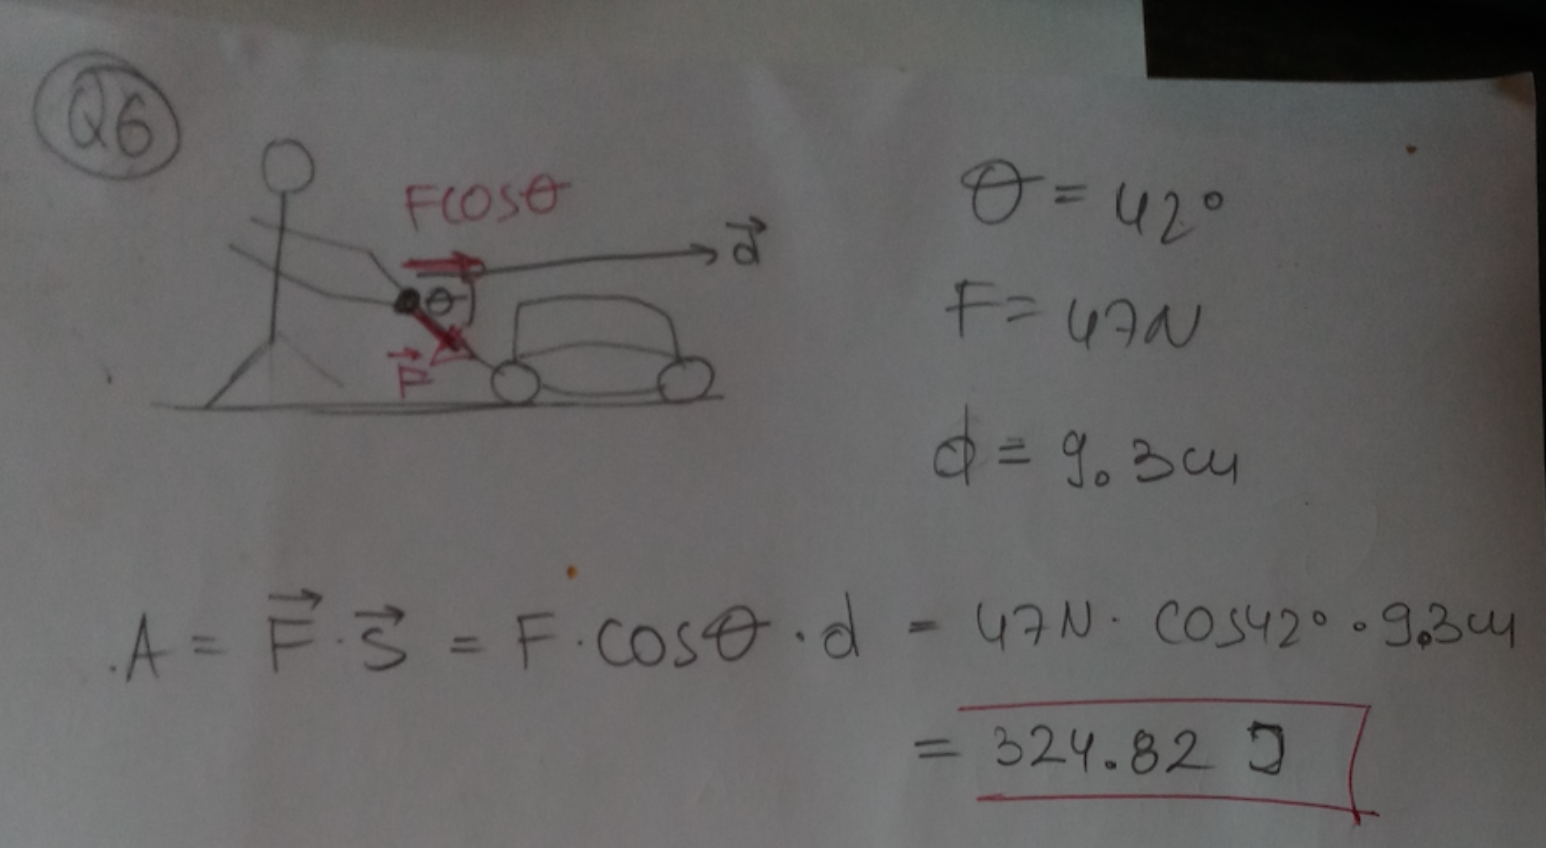 Q6
Fcosθ
d
θ
F
θ = 42°
F = 47N
d = 9.3cm
A = F · S = F · cosθ · d = 47N · cos42° · 9.3cm
= 324.82 J